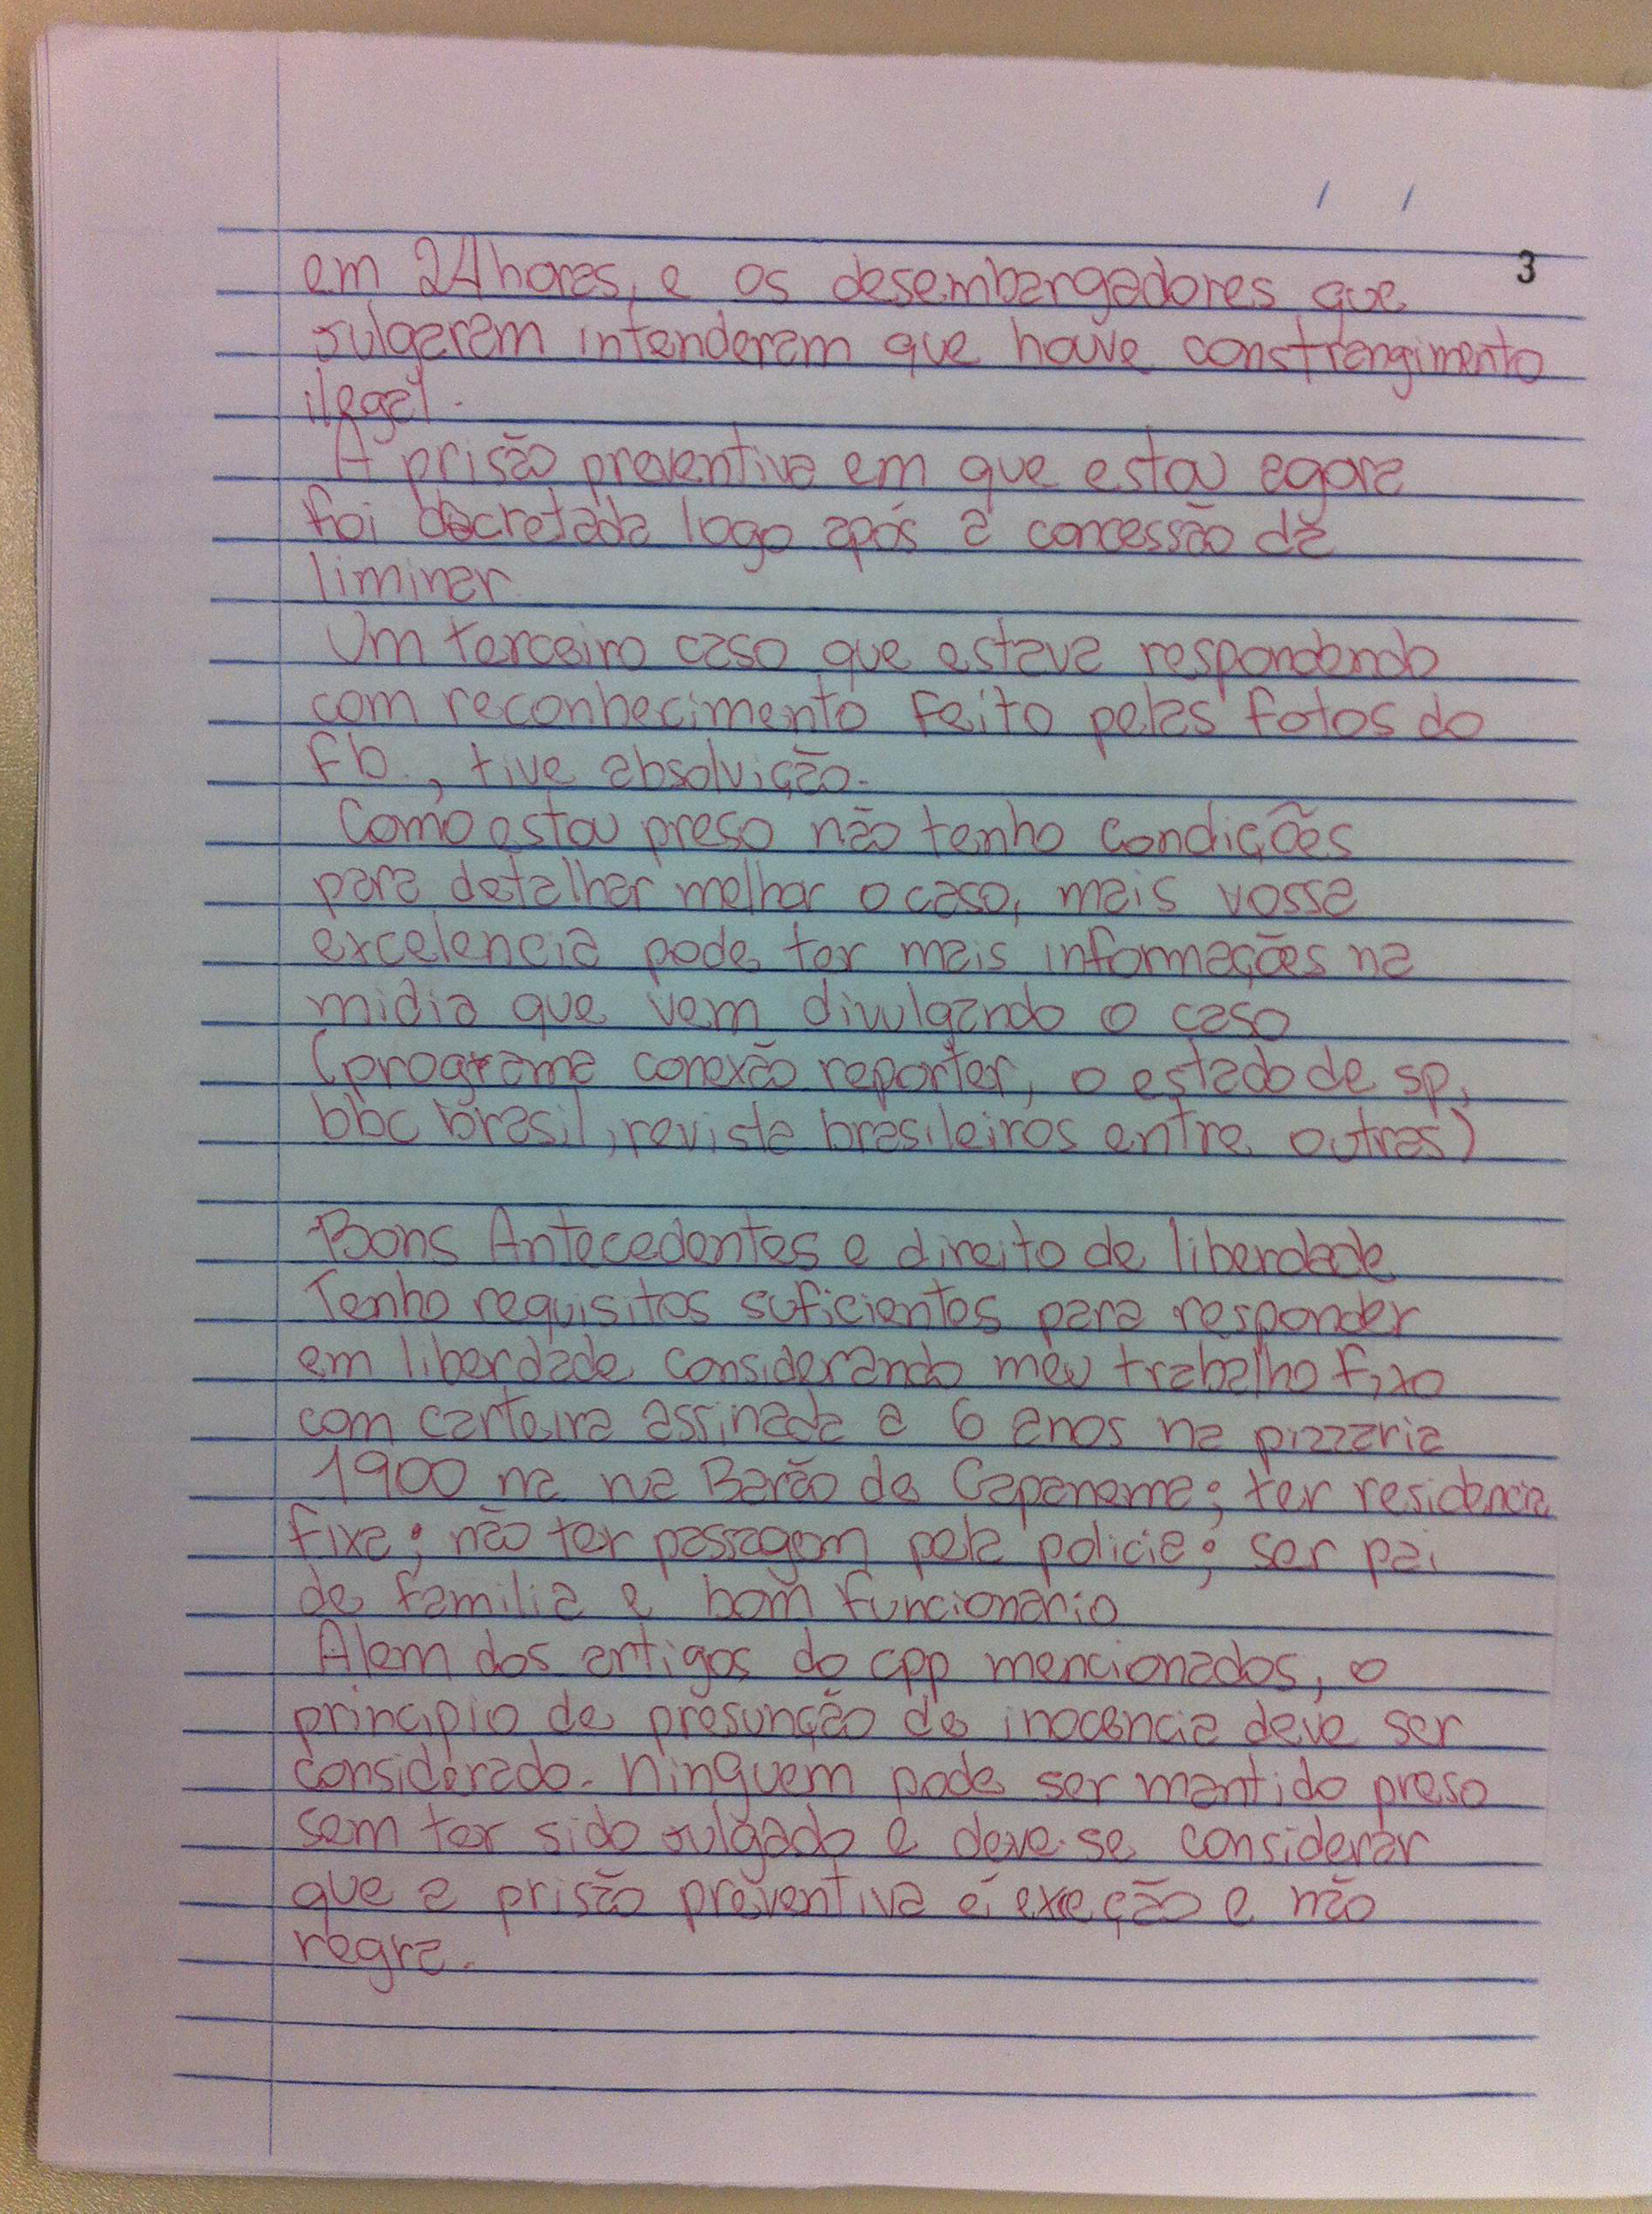 3
em 24 horas, e os desembargadores que
julgaram intenderam que houve constrangimento
ilegal.
A prisão preventiva em que estou agora
foi decretada logo após a concessão da
liminar
Um terceiro caso que estava respondendo
com reconhecimento feito pelas fotos do
fb., tive absolvição.
Como estou preso não tenho condições
para detalhar melhor o caso, mais vossa
excelencia pode ter mais informações na
midia que vem divulgando o caso
(programa conexão reporter, o estado de sp,
bbc brasil, revista brasileiros entre outras)
Bons Antecedentes e direito de liberdade
Tenho requisitos suficientes para responder
em liberdade considerando meu trabalho fixo
com carteira assinada a 6 anos na pizzaria
1900 na rua Barão de Capanema; ter residencia
fixa; não ter passagem pela policia; ser pai
de familia e bom funcionario
Alem dos artigos do cpp mencionados, o
principio de presunção de inocencia deve ser
considerado. Ninguem pode ser mantido preso
sem ter sido julgado e deve-se considerar
que a prisão preventiva é exeção e não
regra.